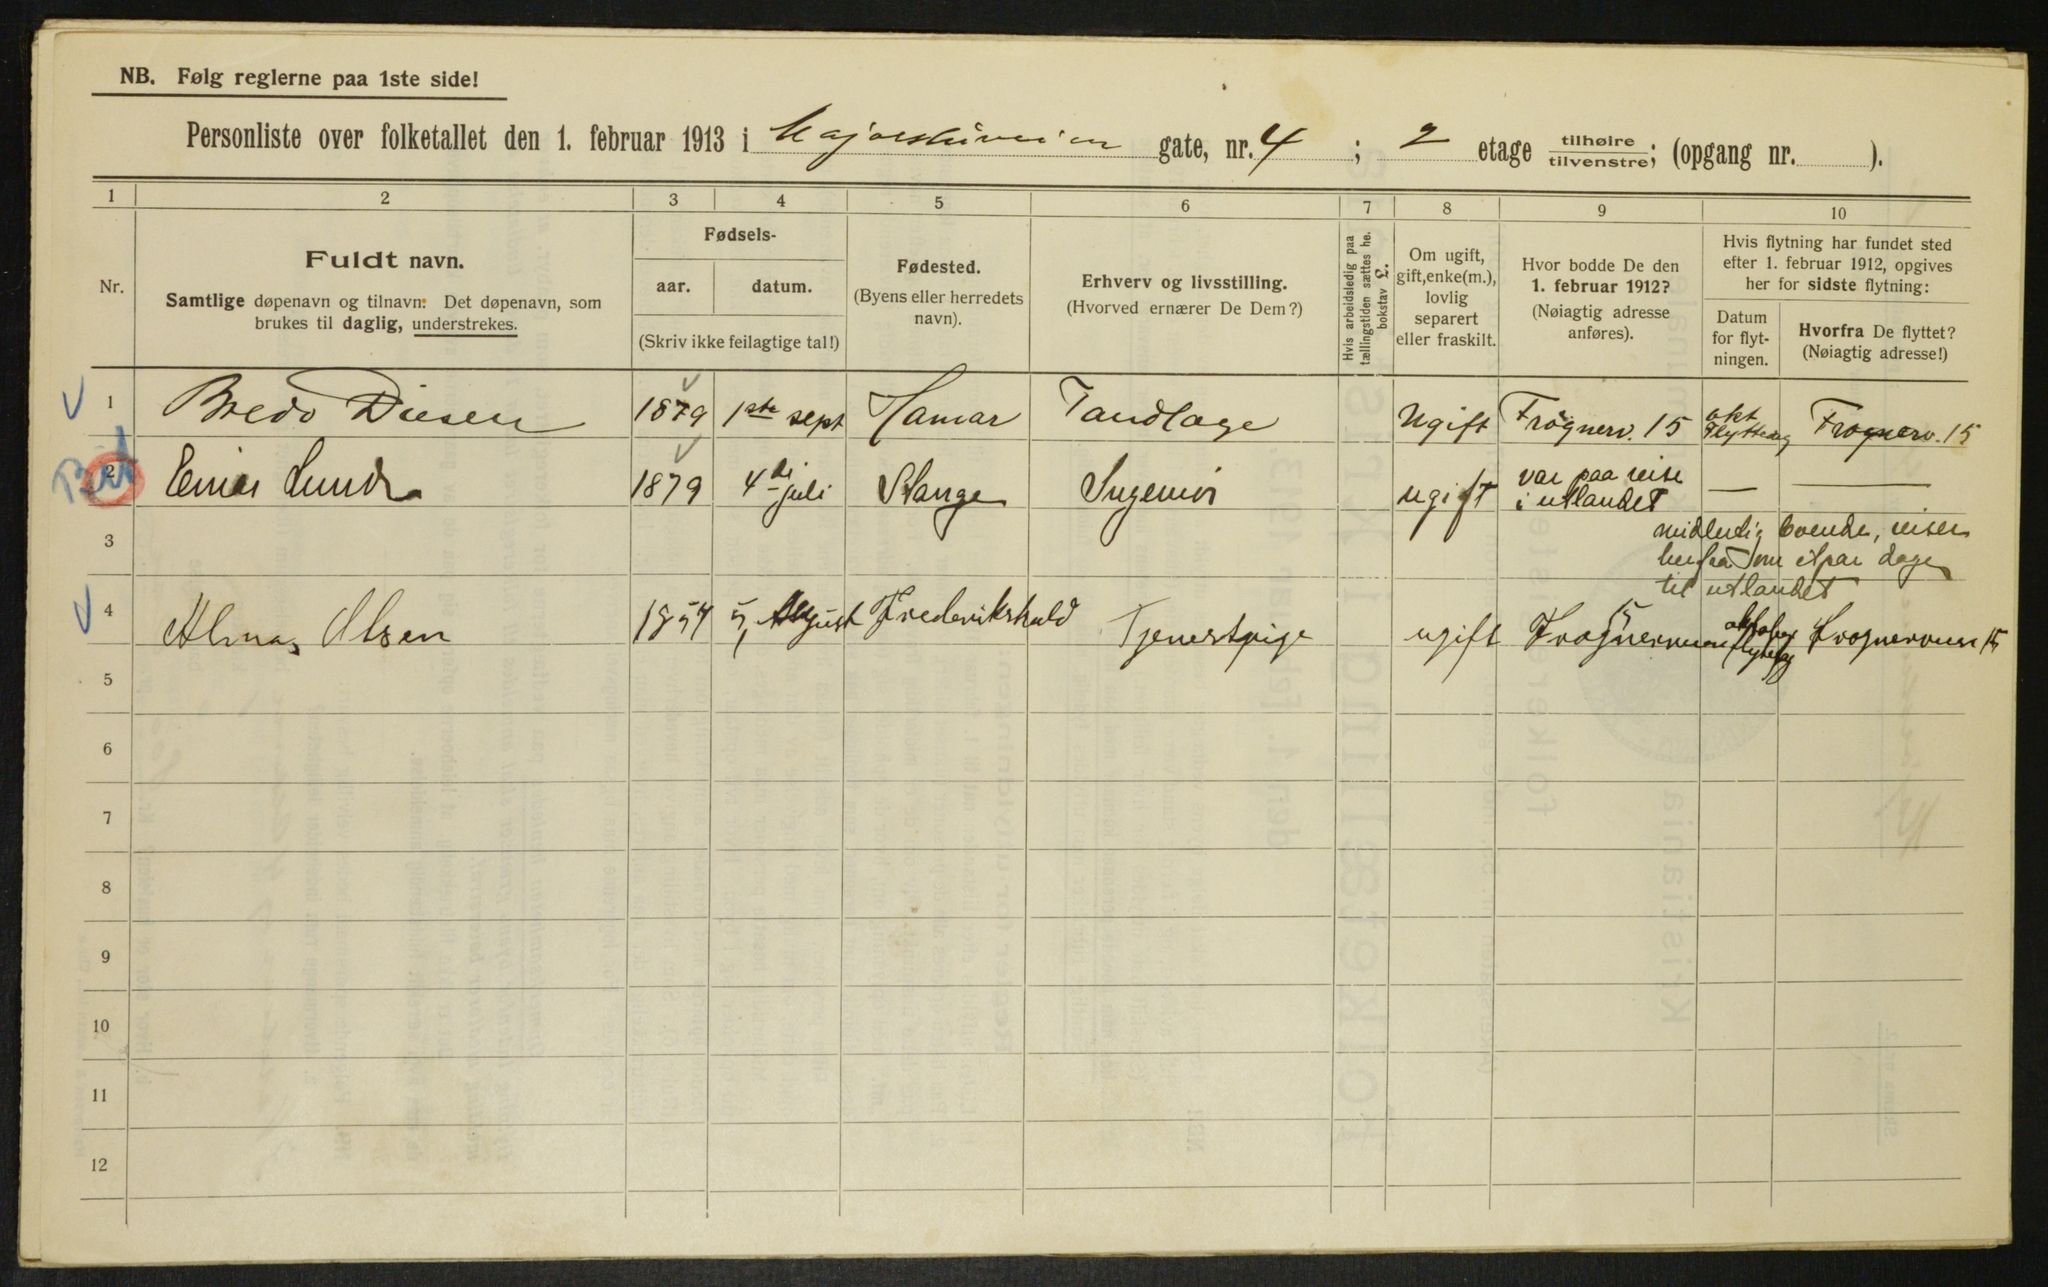 NB. Følg reglerne paa 1ste side!
Personliste over folketallet den 1. februar 1913 i Majorstuveien gate, nr. 4 ; 2 etage tilhøire/tilvenstre; (opgang nr. ).
1 2 3 4 5 6 7 8 9 10
Nr.
Fuldt navn.
Samtlige døpenavn og tilnavn: Det døpenavn, som
brukes til daglig, understrekes.
Fødsels-
aar. datum.
(Skriv ikke feilagtige tal!)
Fødested.
(Byens eller herredets
navn).
Erhverv og livsstilling.
(Hvorved ernærer De Dem?)
Hvis arbeidsledig paa
tællingstiden sættes he.
bokstav £.
Om ugift,
gift, enke(m.),
lovlig
separert
eller fraskilt.
Hvor bodde De den
1. februar 1912?
(Nøiagtig adresse
anføres).
Hvis flytning har fundet sted
efter 1. februar 1912, opgives
her for sidste flytning:
Datum
for flyt-
ningen.
Hvorfra De flyttet?
(Nøiagtig adresse!)
1 Bredo Diesen 1879 1ste sept Hamar Tandlæge Ugift Frognerv. 15 okt Flyttedag Frognerv. 15
2 Einar Sunde 1879 4de juli Stange Ingeniør ugift var paa reise i utlandet — —
3 midlertig boende, reiser
herfra om et par dage
til utlandet
4 Alma Olsen 1854 5 August Frederikshald Tjenestpige ugift Frognerveien 15 oktober flyttedag Frognerveien 15
5
6
7
8
9
10
11
12